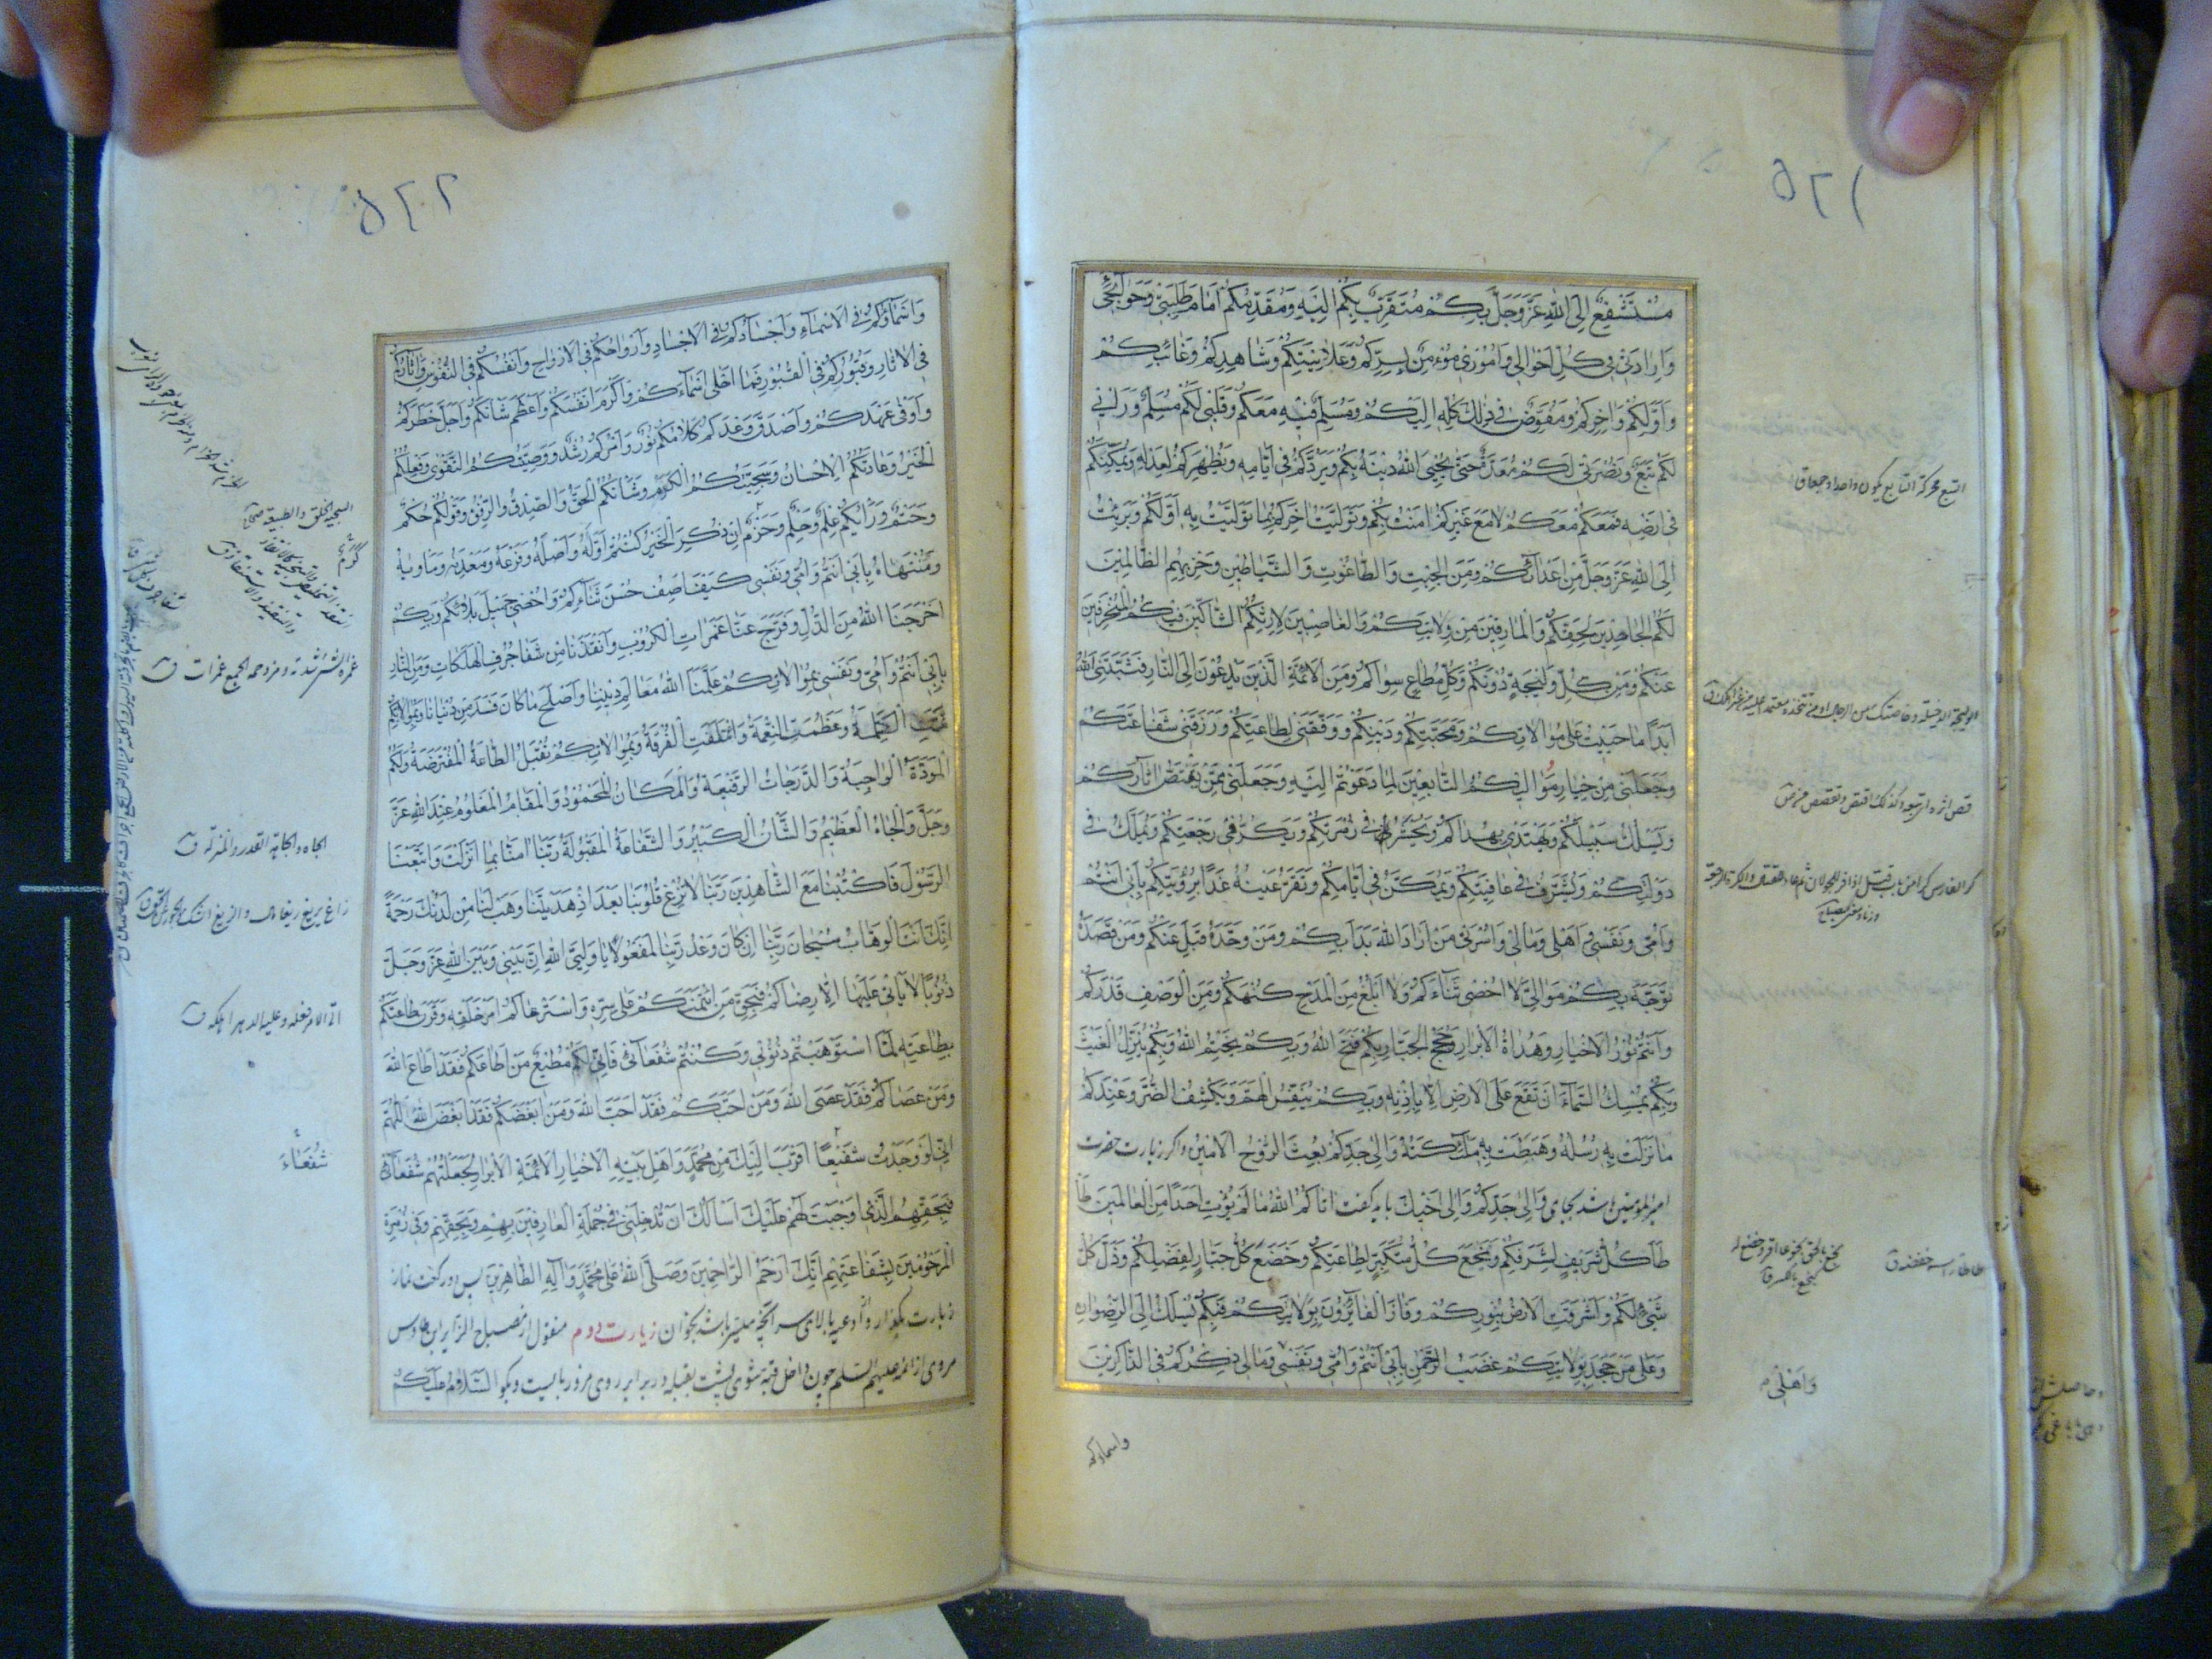 ۵۲۱
مُسْتَشْفِعٌ اِلَى اللهِ عَزَّ وَجَلَّ بِكُمْ مُتَقَرِّبٌ بِكُمْ اِلَيْهِ وَمُقَدِّمُكُمْ اَمامَ طَلِبَتى وَحَوائِجى
وَاِرادَتى فى كُلِّ اَحْوالى وَاُمُورى مُؤْمِنٌ بِسِرِّكُمْ وَعَلانِيَتِكُمْ وَشاهِدِكُمْ وَغائِبِكُمْ
وَاَوَّلِكُمْ وَآخِرِكُمْ وَمُفَوِّضٌ فى ذلِكَ كُلِّهِ اِلَيْكُمْ وَمُسَلِّمٌ فيهِ مَعَكُمْ وَقَلْبى لَكُمْ مُسَلِّمٌ وَرَاْيى
لَكُمْ تَبَعٌ وَنُصْرَتى لَكُمْ مُعَدَّةٌ حَتّى يُحْيِىَ اللهُ دينَهُ بِكُمْ وَيَرُدَّكُمْ فى اَيّامِهِ وَيُظْهِرَكُمْ لِعَدْلِهِ وَيُمَكِّنَكُمْ
فى اَرْضِهِ فَمَعَكُمْ مَعَكُمْ لا مَعَ غَيْرِكُمْ آمَنْتُ بِكُمْ وَتَوَلَّيْتُ آخِرَكُمْ بِما تَوَلَّيْتُ بِهِ اَوَّلَكُمْ وَبَرِئْتُ
اِلَى اللهِ عَزَّ وَجَلَّ مِنْ اَعْدائِكُمْ وَمِنَ الْجِبْتِ وَالطّاغُوتِ وَالشَّياطينِ وَحِزْبِهِمُ الظّالِمينَ
لَكُمُ الْجاحِدينَ لِحَقِّكُمْ وَالْمارِقينَ مِنْ وِلايَتِكُمْ وَالْغاصِبينَ لِاِرْثِكُمْ الشّاكّينَ فيكُمْ الْمُنْحَرِفينَ
عَنْكُمْ وَمِنْ كُلِّ وَليجَةٍ دُونَكُمْ وَكُلِّ مُطاعٍ سِواكُمْ وَمِنَ الْاَئِمَّةِ الَّذينَ يَدْعُونَ اِلَى النّارِ فَثَبَّتَنِىَ اللهُ
اَبَداً ما حَييتُ عَلى مُوالاتِكُمْ وَمَحَبَّتِكُمْ وَدينِكُمْ وَوَفَّقَنى لِطاعَتِكُمْ وَرَزَقَنى شَفاعَتَكُمْ
وَجَعَلَنى مِنْ خِيارِ مَواليكُمْ التّابِعينَ لِما دَعَوْتُمْ اِلَيْهِ وَجَعَلَنى مِمَّنْ يَقْتَصُّ آثارَكُمْ
وَيَسْلُكُ سَبيلَكُمْ وَيَهْتَدى بِهُداكُمْ وَيُحْشَرُ فى زُمْرَتِكُمْ وَيَكِرُّ فى رَجْعَتِكُمْ وَيُمَلَّكُ فى
دَوْلَتِكُمْ وَيُشَرَّفُ فى عافِيَتِكُمْ وَيُمَكَّنُ فى اَيّامِكُمْ وَتَقَرُّ عَيْنُهُ غَداً بِرُؤْيَتِكُمْ بِاَبى اَنْتُمْ
وَاُمّى وَنَفْسى وَاَهْلى وَمالى وَاُسْرَتى مَنْ اَرادَ اللهَ بَدَاَ بِكُمْ وَمَنْ وَحَّدَهُ قَبِلَ عَنْكُمْ وَمَنْ قَصَدَهُ
تَوَجَّهَ بِكُمْ مَوالِىَّ لا اُحْصى ثَناءَكُمْ وَلا اَبْلُغُ مِنَ الْمَدْحِ كُنْهَكُمْ وَمِنَ الْوَصْفِ قَدْرَكُمْ
وَاَنْتُمْ نُورُ الْاَخْيارِ وَهُداةُ الْاَبْرارِ وَحُجَجُ الْجَبّارِ بِكُمْ فَتَحَ اللهُ وَبِكُمْ يَخْتِمُ اللهُ وَبِكُمْ يُنَزِّلُ الْغَيْثَ
وَبِكُمْ يُمْسِكُ السَّماءَ اَنْ تَقَعَ عَلَى الْاَرْضِ اِلّا بِاِذْنِهِ وَبِكُمْ يُنَفِّسُ الْهَمَّ وَيَكْشِفُ الضُّرَّ وَعِنْدَكُمْ
ما نَزَلَتْ بِهِ رُسُلُهُ وَهَبَطَتْ بِهِ مَلائِكَتُهُ وَاِلى جَدِّكُمْ بُعِثَ الرُّوحُ الْاَمينُ واكر زيارت حضرت
امير المؤمنين باشد بجاى وَاِلى جَدِّكُمْ وَاِلى اَخيكَ بايد كفت آتاكُمُ اللهُ ما لَمْ يُؤْتِ اَحَداً مِنَ الْعالَمينَ طَأْ
طَأَ كُلُّ شَريفٍ لِشَرَفِكُمْ وَبَخَعَ كُلُّ مُتَكَبِّرٍ لِطاعَتِكُمْ وَخَضَعَ كُلُّ جَبّارٍ لِفَضْلِكُمْ وَذَلَّ كُلُّ
شَىْءٍ لَكُمْ وَاَشْرَقَتِ الْاَرْضُ بِنُورِكُمْ وَفازَ الْفائِزُونَ بِوِلايَتِكُمْ فَبِكُمْ يُسْلَكُ اِلَى الرِّضْوانِ
وَعَلى مَنْ جَحَدَ وِلايَتَكُمْ غَضَبُ الرَّحْمنِ بِاَبى اَنْتُمْ وَاُمّى وَنَفْسى وَمالى ذِكْرُكُمْ فِى الذّاكِرينَ
التبع محركة التابع يكون واحدا وجمعا ق
وَاَهْلى م
واسماؤكم
۵۲۲
وَاَسْماؤُكُمْ فِى الْاَسْماءِ وَاَجْسادُكُمْ فِى الْاَجْسادِ وَاَرْواحُكُمْ فِى الْاَرْواحِ وَاَنْفُسُكُمْ فِى النُّفُوسِ وَآثارُكُمْ
فِى الْآثارِ وَقُبُورُكُمْ فِى الْقُبُورِ فَما اَحْلى اَسْماءَكُمْ وَاَكْرَمَ اَنْفُسَكُمْ وَاَعْظَمَ شَاْنَكُمْ وَاَجَلَّ خَطَرَكُمْ
وَاَوْفى عَهْدَكُمْ وَاَصْدَقَ وَعْدَكُمْ كَلامُكُمْ نُورٌ وَاَمْرُكُمْ رُشْدٌ وَوَصِيَّتُكُمُ التَّقْوى وَفِعْلُكُمُ
الْخَيْرُ وَعادَتُكُمُ الْاِحْسانُ وَسَجِيَّتُكُمُ الْكَرَمُ وَشَاْنُكُمُ الْحَقُّ وَالصِّدْقُ وَالرِّفْقُ وَقَوْلُكُمْ حُكْمٌ
وَحَتْمٌ وَرَاْيُكُمْ عِلْمٌ وَحِلْمٌ وَحَزْمٌ اِنْ ذُكِرَ الْخَيْرُ كُنْتُمْ اَوَّلَهُ وَاَصْلَهُ وَفَرْعَهُ وَمَعْدِنَهُ وَمَاْواهُ
وَمُنْتَهاهُ بِاَبى اَنْتُمْ وَاُمّى وَنَفْسى كَيْفَ اَصِفُ حُسْنَ ثَنائِكُمْ وَاُحْصى جَميلَ بَلائِكُمْ وَبِكُمْ
اَخْرَجَنَا اللهُ مِنَ الذُّلِّ وَفَرَّجَ عَنّا غَمَراتِ الْكُرُوبِ وَاَنْقَذَنا مِنْ شَفا جُرُفِ الْهَلَكاتِ وَمِنَ النّارِ
بِاَبى اَنْتُمْ وَاُمّى وَنَفْسى بِمُوالاتِكُمْ عَلَّمَنَا اللهُ مَعالِمَ دينِنا وَاَصْلَحَ ما كانَ فَسَدَ مِنْ دُنْيانا وَبِمُوالاتِكُمْ
تَمَّتِ الْكَلِمَةُ وَعَظُمَتِ النِّعْمَةُ وَائْتَلَفَتِ الْفُرْقَةُ وَبِمُوالاتِكُمْ تُقْبَلُ الطّاعَةُ الْمُفْتَرَضَةُ وَلَكُمُ
الْمَوَدَّةُ الْواجِبَةُ وَالدَّرَجاتُ الرَّفيعَةُ وَالْمَكانُ الْمَحْمُودُ وَالْمَقامُ الْمَعْلُومُ عِنْدَ اللهِ عَزَّ
وَجَلَّ وَالْجاهُ الْعَظيمُ وَالشَّاْنُ الْكَبيرُ وَالشَّفاعَةُ الْمَقْبُولَةُ رَبَّنا آمَنّا بِما اَنْزَلْتَ وَاتَّبَعْنَا
الرَّسُولَ فَاكْتُبْنا مَعَ الشّاهِدينَ رَبَّنا لا تُزِغْ قُلُوبَنا بَعْدَ اِذْ هَدَيْتَنا وَهَبْ لَنا مِنْ لَدُنْكَ رَحْمَةً
اِنَّكَ اَنْتَ الْوَهّابُ سُبْحانَ رَبِّنا اِنْ كانَ وَعْدُ رَبِّنا لَمَفْعُولاً يا وَلِىَّ اللهِ اِنَّ بَيْنى وَبَيْنَ اللهِ عَزَّ وَجَلَّ
ذُنُوباً لا يَاْتى عَلَيْها اِلّا رِضاكُمْ فَبِحَقِّ مَنِ ائْتَمَنَكُمْ عَلى سِرِّهِ وَاسْتَرْعاكُمْ اَمْرَ خَلْقِهِ وَقَرَنَ طاعَتَكُمْ
بِطاعَتِهِ لَمَّا اسْتَوْهَبْتُمْ ذُنُوبى وَكُنْتُمْ شُفَعائى فَاِنّى لَكُمْ مُطيعٌ مَنْ اَطاعَكُمْ فَقَدْ اَطاعَ اللهَ
وَمَنْ عَصاكُمْ فَقَدْ عَصَى اللهَ وَمَنْ اَحَبَّكُمْ فَقَدْ اَحَبَّ اللهَ وَمَنْ اَبْغَضَكُمْ فَقَدْ اَبْغَضَ اللهَ اَللّهُمَّ
اِنّى لَوْ وَجَدْتُ شَفيعاً اَقْرَبَ اِلَيْكَ مِنْ مُحَمَّدٍ وَاَهْلِ بَيْتِهِ الْاَخْيارِ الْاَئِمَّةِ الْاَبْرارِ لَجَعَلْتُهُمْ شُفَعائى
فَبِحَقِّهِمُ الَّذى اَوْجَبْتَ لَهُمْ عَلَيْكَ اَسْاَلُكَ اَنْ تُدْخِلَنى فى جُمْلَةِ الْعارِفينَ بِهِمْ وَبِحَقِّهِمْ وَفى زُمْرَةِ
الْمَرْحُومينَ بِشَفاعَتِهِمْ اِنَّكَ اَرْحَمُ الرّاحِمينَ وَصَلَّى اللهُ عَلى مُحَمَّدٍ وَآلِهِ الطّاهِرينَ پس دو ركعت نماز
زيارت بكذار و از ادعيه بالاى سر انچه ميسر باشد بخوان زيارت دوم منقول از مصباح الزاير ابن طاوس
مروى از ائمه عليهم السلم چون داخل قبه شوى پشت بقبله و در برابر روى مزور بايست و بكو السَّلامُ عَلَيْكُمْ
الجاه والجاهة القدر والمنزلة ق
شُفَعاءَ